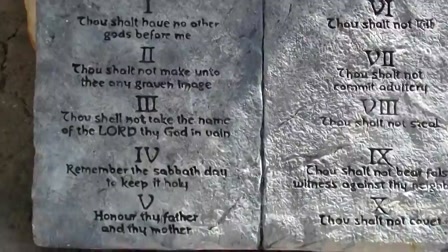 I
Thou shalt have no other
gods before me
II
Thou shalt not make unto
thee any graven image
III
Thou shell not take the name
of the LORD thy God in vain
IV
Remember the sabbath day
to keep it holy
V
Honour thy father
and thy mother
VI
Thou shalt not kill
VII
Thou shalt not
commit adultery
VIII
Thou shalt not steal
IX
Thou shalt not bear fals
witness against thy neighb
X
Thou shalt not covet